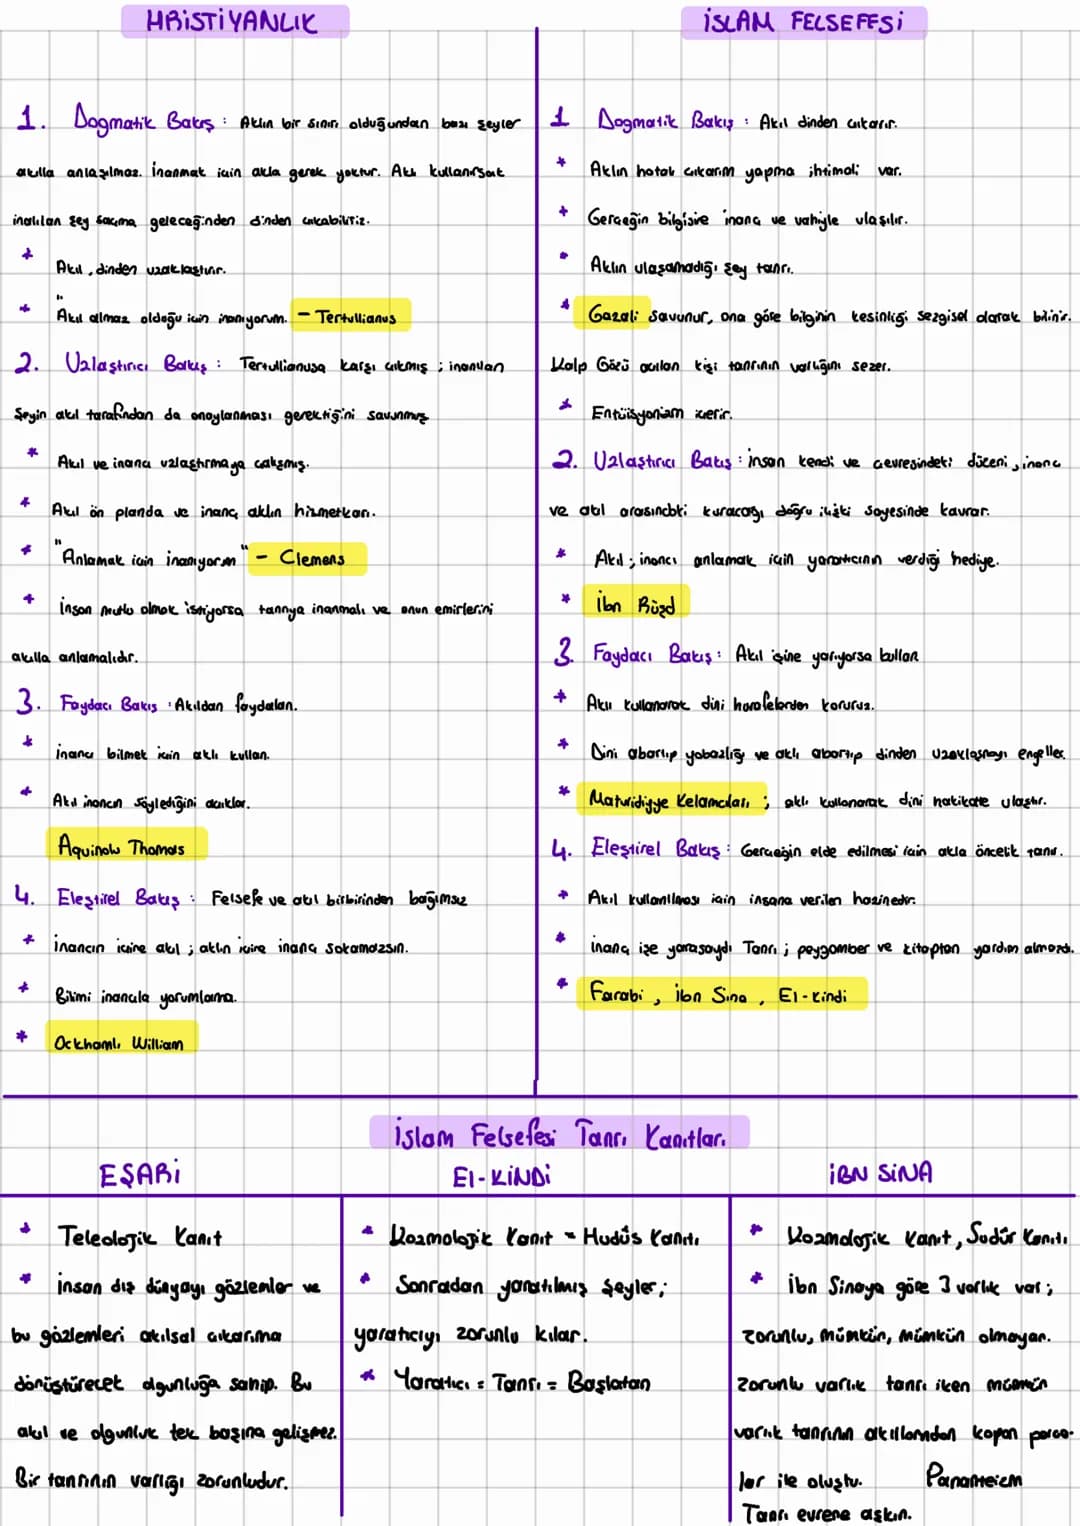 HRİSTİYANLIK
1. Dogmatik Bakış : Aklın bir sınırı olduğundan bazı şeyler
akılla anlaşılmaz. İnanmak için akla gerek yoktur. Aklı kullanırsak
inanılan şey saçma geleceğinden dinden çıkabiliriz.
* Akıl, dinden uzaklaştırır.
* "Akıl almaz olduğu için inanıyorum. - Tertullianus
2. Uzlaştırıcı Bakış : Tertullianusa karşı çıkmış ; inanılan
şeyin akıl tarafından da onaylanması gerektiğini savunmuş
* Akıl ve inancı uzlaştırmaya çalışmış.
* Akıl ön planda ve inanç aklın hizmetkarı.
* "Anlamak için inanıyorum" - Clemens
* İnsan mutlu olmak istiyorsa tanrıya inanmalı ve onun emirlerini
akılla anlamalıdır.
3. Faydacı Bakış : Akıldan faydalan.
* inancı bilmek için aklı kullan.
* Akıl inancın söylediğini açıklar.
Aquinolu Thomas
4. Eleştirel Bakış : Felsefe ve akıl birbirinden bağımsız
* inancın içine akıl ; aklın içine inanç sokamazsın.
* Bilimi inançla yorumlama.
* Ockhamlı William
İSLAM FELSEFESİ
1 Dogmatik Bakış : Akıl dinden çıkarır.
* Aklın hatalı çıkarım yapma ihtimali var.
* Gerçeğin bilgisine inanç ve vahiyle ulaşılır.
* Aklın ulaşamadığı şey tanrı.
* Gazali savunur, ona göre bilginin kesinliği sezgisel olarak bilinir.
Kalp Gözü açılan kişi tanrının varlığını sezer.
* Entüisyonizm içerir.
2. Uzlaştırıcı Bakış : insan kendi ve çevresindeki düzeni, inanç
ve akıl arasındaki kuracağı doğru ilişki sayesinde kavrar.
* Akıl ; inancı anlamak için yaratıcının verdiği hediye.
* İbn Rüşd
3. Faydacı Bakış : Akıl işine yarıyorsa kullan
* Aklı kullanarak dini hurafelerden koruruz.
* Dini abartıp yobazlığı ve aklı abartıp dinden uzaklaşmayı engeller.
* Maturidiyye Kelamcıları ; aklı kullanarak dini hakikate ulaştır.
4. Eleştirel Bakış : Gerçeğin elde edilmesi için akla öncelik tanır.
* Akıl kullanılması için insana verilen hazinedir.
* inanç işe yarasaydı Tanrı ; peygamber ve kitaptan yardım almazdı.
* Farabi , İbn Sina , El-Kindi
İslam Felsefesi Tanrı Kanıtları
EŞARİ
* Teleolojik Kanıt
* İnsan dış dünyayı gözlemler ve
bu gözlemleri akılsal çıkarıma
dönüştürecek olgunluğa sahip. Bu
akıl ve olgunluk tek başına gelişmez.
Bir tanrının varlığı zorunludur.
El-KİNDİ
* Kozmolojik Kanıt = Hudûs Kanıtı
* Sonradan yaratılmış şeyler ;
yaratıcıyı zorunlu kılar.
* Yaratıcı = Tanrı = Başlatan
İBN SİNA
* Kozmolojik Kanıt, Sudûr Kanıtı
* İbn Sinaya göre 3 varlık var ;
zorunlu, mümkün, mümkün olmayan.
zorunlu varlık tanrı iken mümkün
varlık tanrının akıllarından kopan parça-
lar ile oluştu. Pananteizm
Tanrı evrene aşkın.